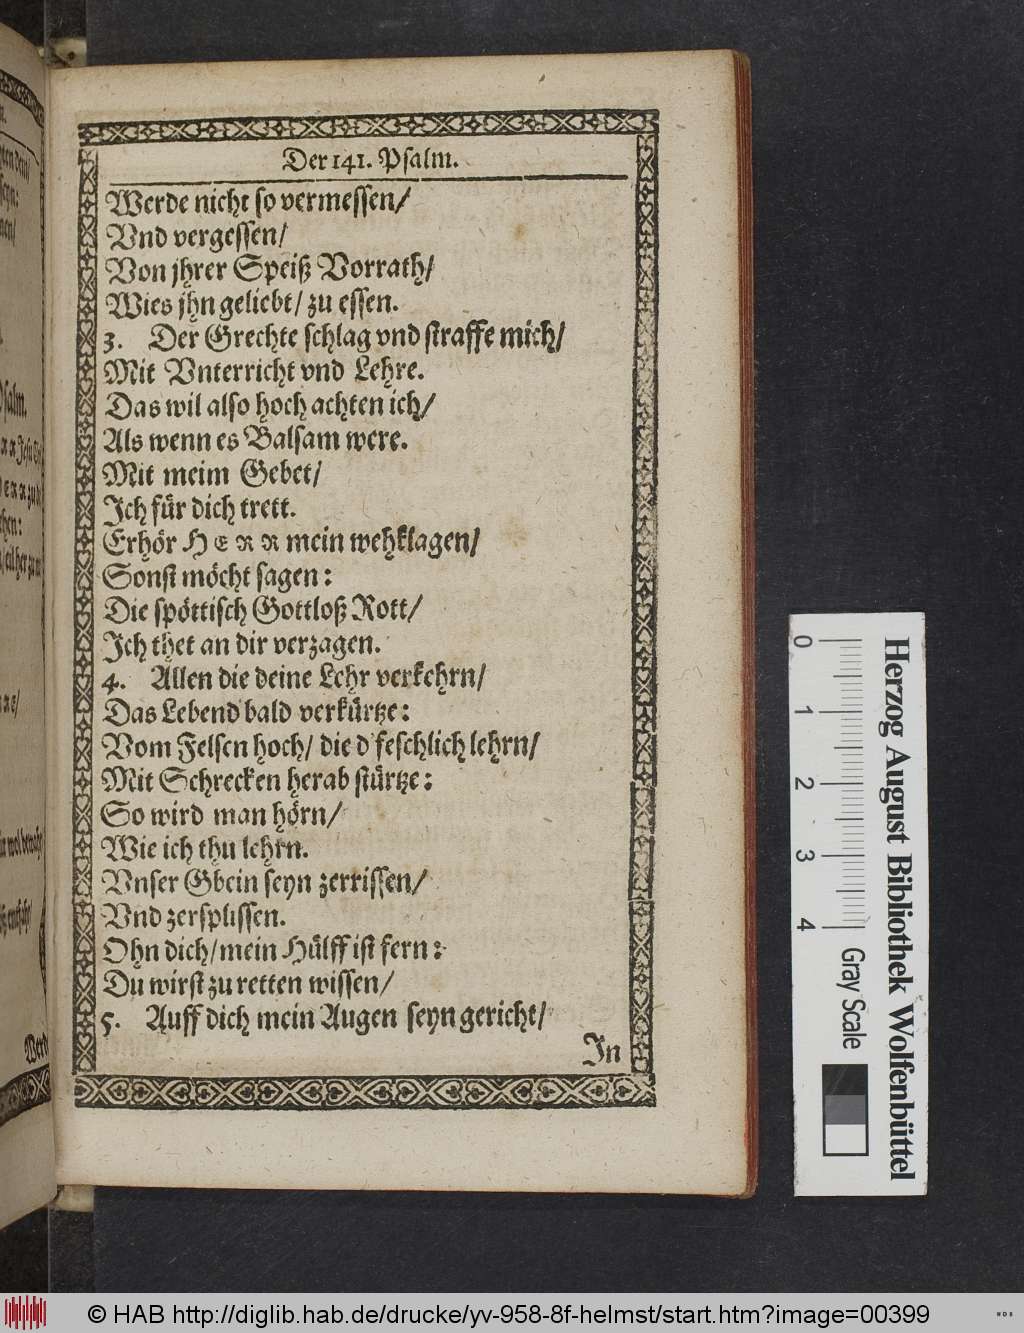 Der 141. Psalm.
Werde nicht so vermessen/
Vnd vergessen/
Von jhrer Speiß Vorrath/
Wies jhn geliebt/ zu essen.
3. Der Grechte schlag vnd straffe mich/
Mit Vnterricht vnd Lehre.
Das wil also hoch achten ich/
Als wenn es Balsam were.
Mit meim Gebet/
Ich für dich trett.
Erhör HERR mein wehklagen/
Sonst möcht sagen:
Die spöttisch Gottloß Rott/
Ich thet an dir verzagen.
4. Allen die deine Lehr verkehrn/
Das Lebend bald verkürtze:
Vom Felsen hoch/ die d feschlich lehrn/
Mit Schrecken herab stürtze:
So wird man hörn/
Wie ich thu lehrn.
Vnser Gbein seyn zerrissen/
Vnd zersplissen.
Ohn dich/ mein Hülff ist fern:
Du wirst zu retten wissen/
5. Auff dich mein Augen seyn gericht/
In
Werd
Herzog August Bibliothek Wolfenbüttel
0 1 2 3 4
Gray Scale
© HAB http://diglib.hab.de/drucke/yv-958-8f-helmst/start.htm?image=00399